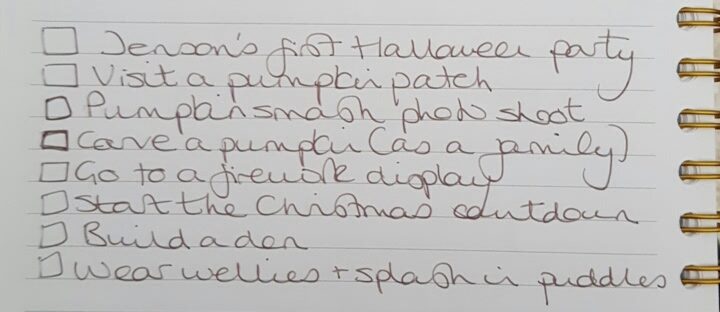 ☐ Jenson's first Halloween party
☐ Visit a pumpkin patch
☐ Pumpkin smash photo shoot
☐ Carve a pumpkin (as a family)
☐ Go to a firework display
☐ Start the Christmas countdown
☐ Build a den
☐ Wear wellies + splash in puddles